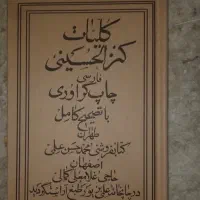 کلیات
کنز الحسینی
فارسی
چاپ گراوری
با تصحیح کامل
طهران
کتابفروشی محمد حسن علمی
اصفهان
حاجی